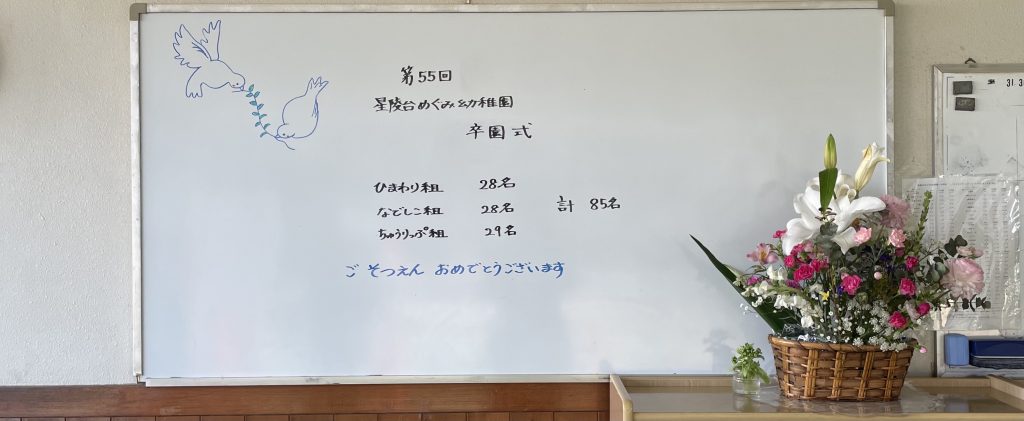 第55回
星陵台めぐみ幼稚園
卒園式
ひまわり組 28名
なでしこ組 28名 計 85名
ちゅうりっぷ組 29名
ご そつえん おめでとうございます